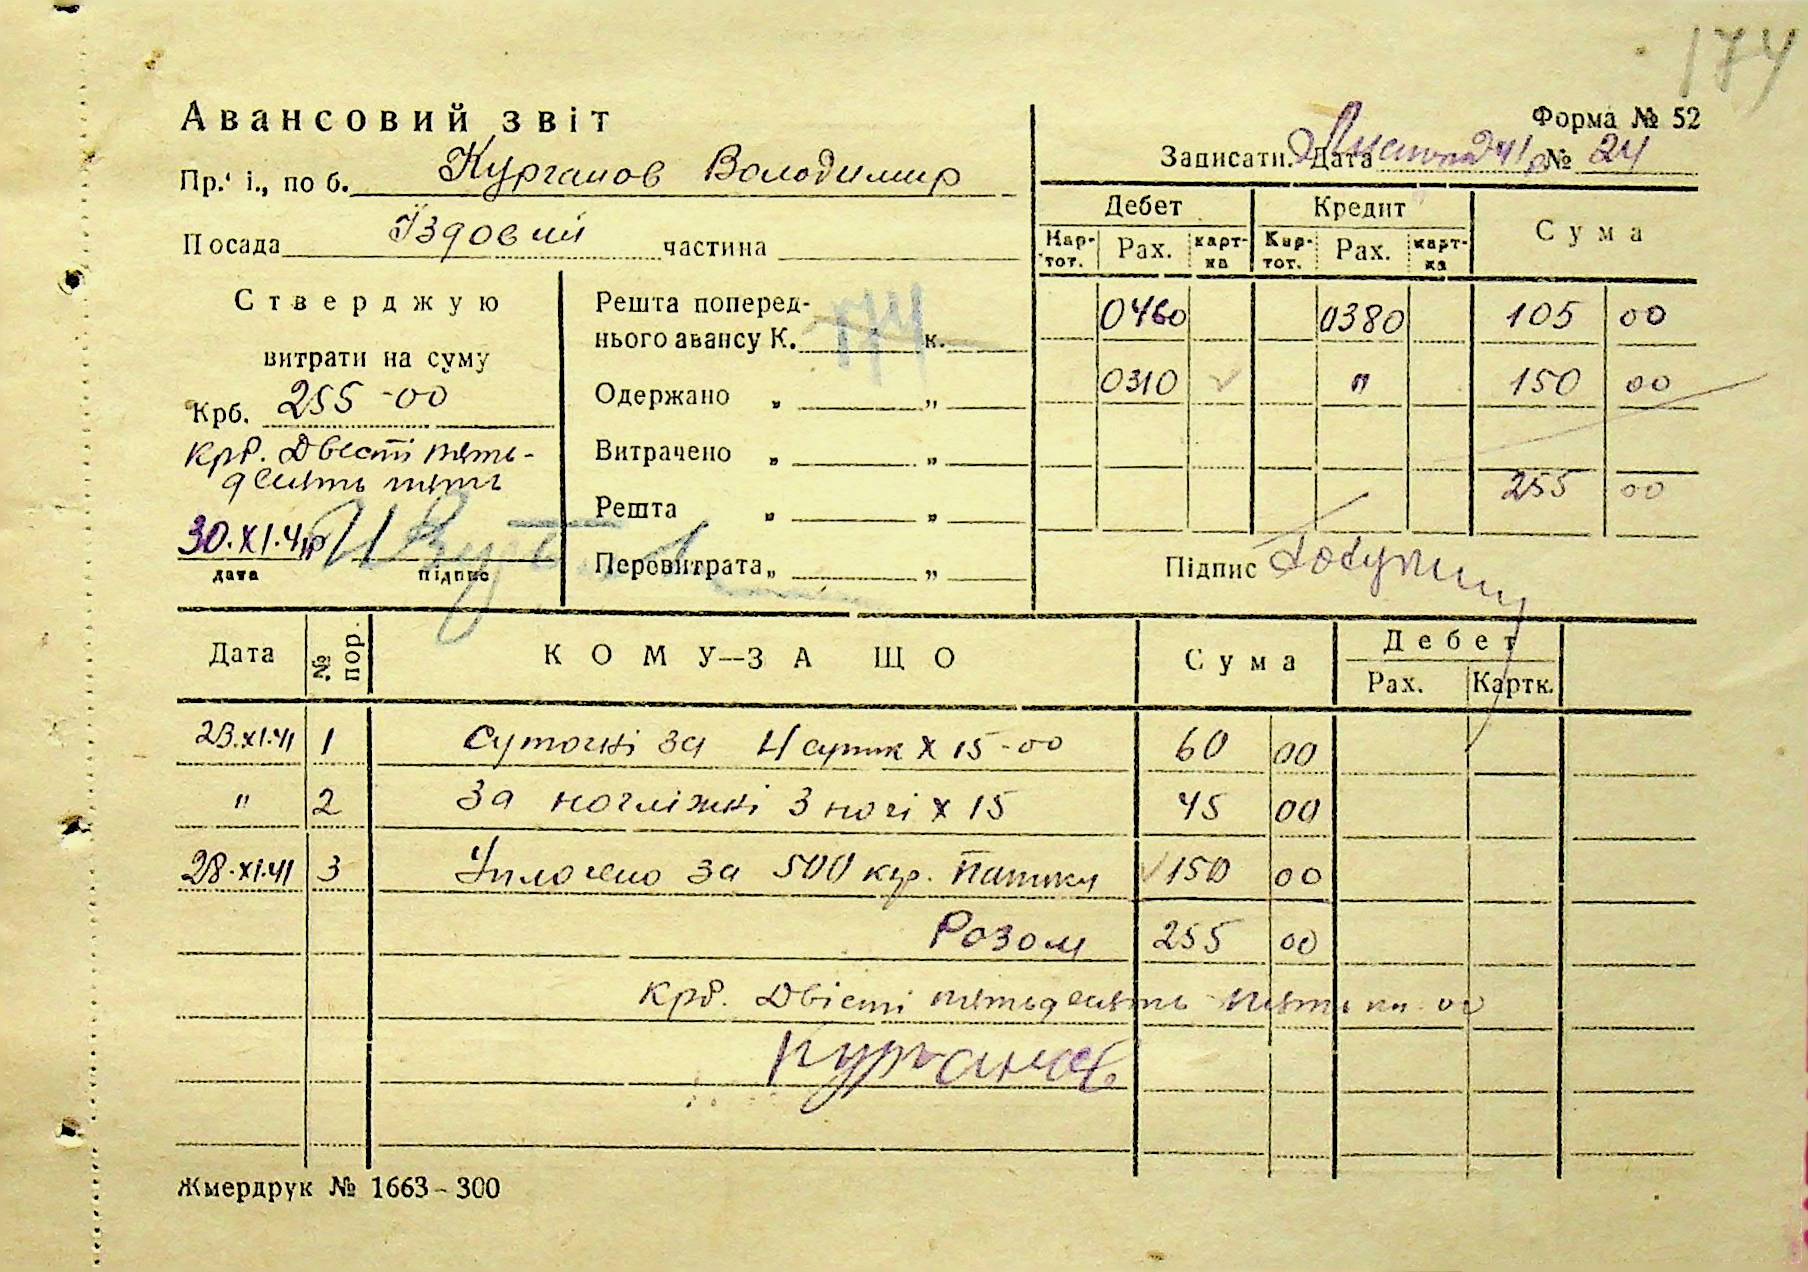 174
Авансовий звіт
Форма № 52
Записати. Дата Листопад 41р № 24
Пр. і., по б. Курганов Володимир
Посада Їздовий частина
Дебет Кредит Сума
Кар-тот. Рах. карт-ка Кар-тот. Рах. карт-ка
0460 0380 105 00
0310 " 150 00
255 00
Підпис
Стверджую
витрати на суму
Крб. 255-00
крб. Двісті пять-
десять пять
30.XI.41р
дата підпис
Решта поперед-
нього авансу К. 174 к.
Одержано „ „
Витрачено „ „
Решта „ „
Перевитрата „ „
Дата № пор. КОМУ—ЗА ЩО Сума Дебет
Рах. Картк.
23.XI.41 1 Суточні за 4 суток х 15-00 60 00
" 2 За ночліжкі 3 ночі х 15 45 00
28.XI.41 3 Уплочено за 500 кгр. Патики 150 00
Розом 255 00
крб. Двісті пятьдесять пять коп. 00
Курганов
Жмердрук № 1663-300